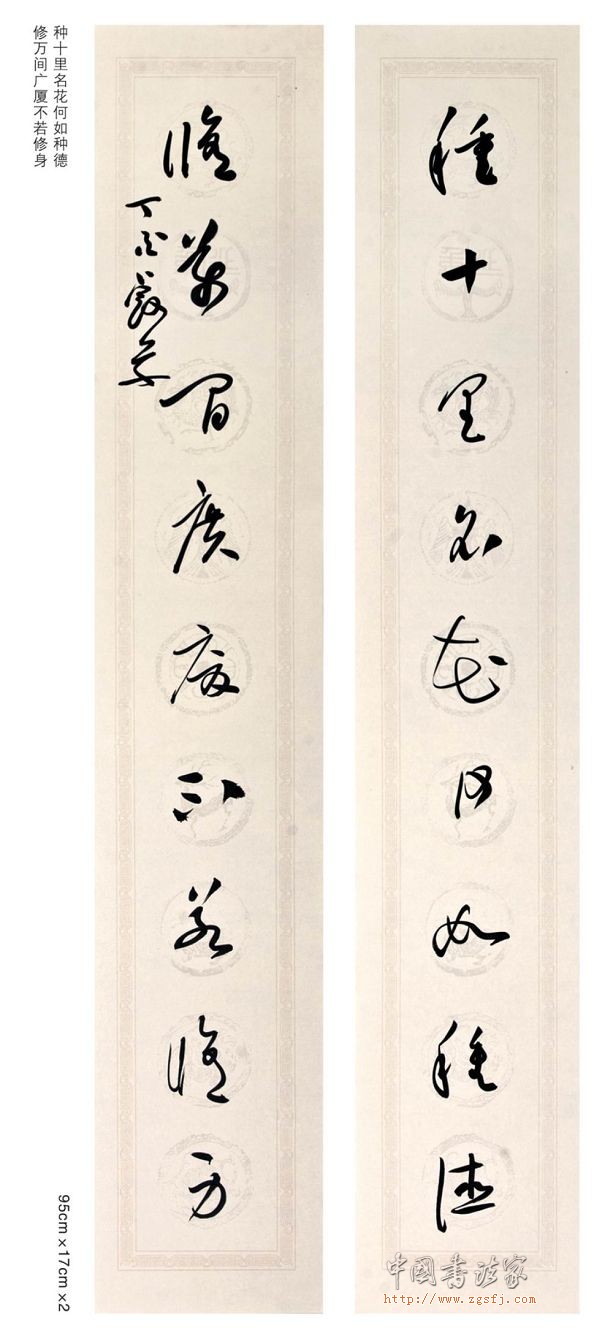 種十里名花何如種德
修萬間廣廈不若修身
种十里名花何如种德
修万间广厦不若修身
95cm×17cm×2
中国书法家
http://www.zgsfj.com